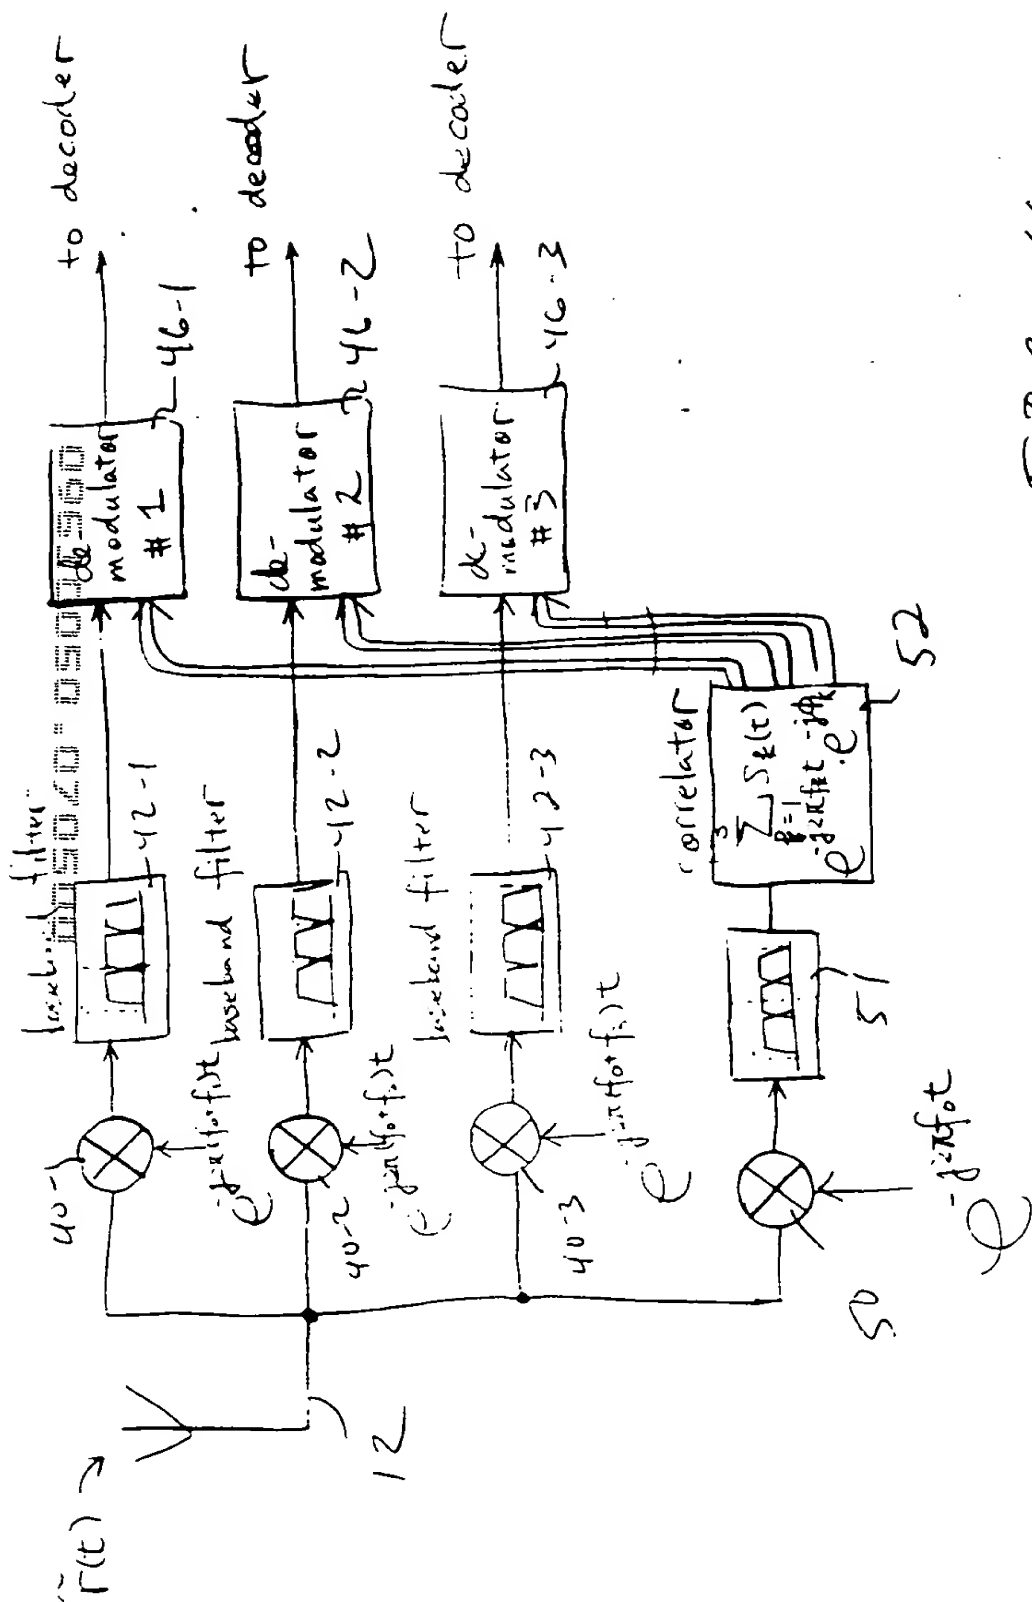 r̃(t)
12
40-1
e^{-j2π(f₀+f₁)t}
baseband filter
42-1
de-
modulator
#1
46-1
to decoder
40-2
e^{-j2π(f₀+f₂)t}
baseband filter
42-2
de-
modulator
#2
46-2
to decoder
40-3
e^{-j2π(f₀+f₃)t}
baseband filter
42-3
de-
modulator
#3
46-3
to decoder
50
e^{-j2πf₀t}
51
correlator
3
∑ S_k(t)
k=1
e^{-j2πf_kt} · e^{-jϕ_k}
52